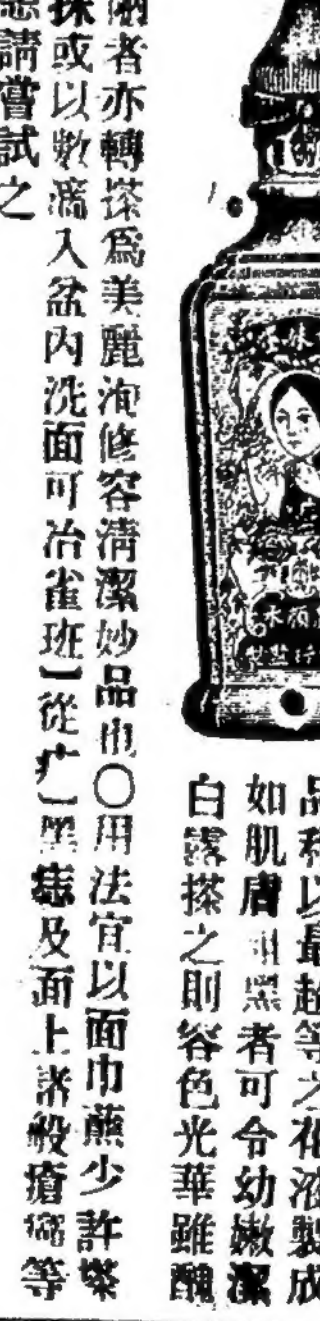 品
以最超等之花液製成
如肌膚 黑者可令幼嫩潔
白露搽之則容色光華雖醜
陋者亦轉搽為美麗洵修容清潔妙品也〇用法宜以面巾蘸少許搽
抹或以數滴入盆內洗面可治雀班【從疒】黑痣及面上諸般瘡 等
恙請嘗試之
妹
水